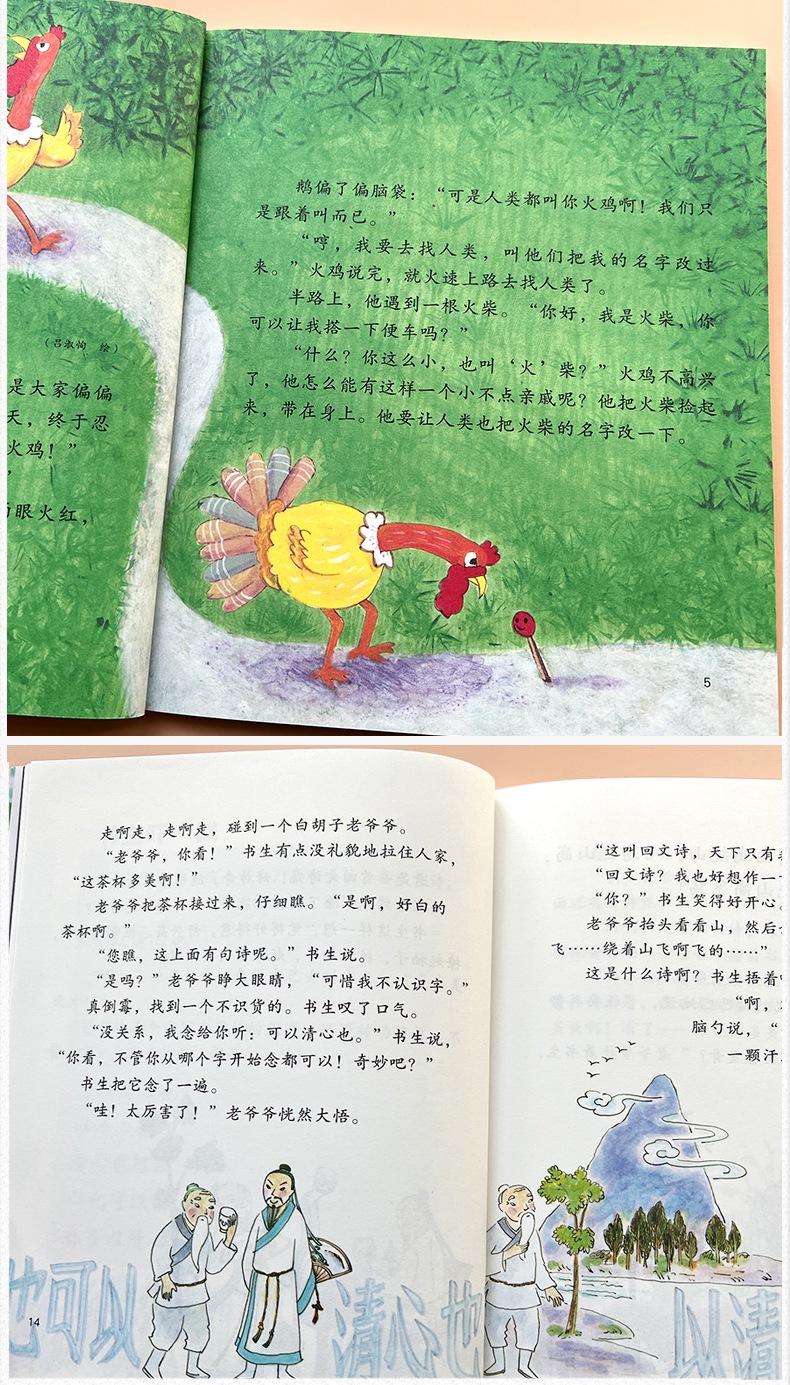 （吕淑恂 绘）
是大家偏偏
天，终于忍
火鸡！”
”
眼火红，
鹅偏了偏脑袋：“可是人类都叫你火鸡啊！我们只
是跟着叫而已。”
“哼，我要去找人类，叫他们把我的名字改过
来。”火鸡说完，就火速上路去找人类了。
半路上，他遇到一根火柴。“你好，我是火柴，你
可以让我搭一下便车吗？”
“什么？你这么小，也叫‘火’柴？”火鸡不高兴
了，他怎么能有这样一个小不点亲戚呢？他把火柴捡起
来，带在身上。他要让人类也把火柴的名字改一下。
5
走啊走，走啊走，碰到一个白胡子老爷爷。
“老爷爷，你看！”书生有点没礼貌地拉住人家，
“这茶杯多美啊！”
老爷爷把茶杯接过来，仔细瞧。“是啊，好白的
茶杯啊。”
“您瞧，这上面有句诗呢。”书生说。
“是吗？”老爷爷睁大眼睛，“可惜我不认识字。”
真倒霉，找到一个不识货的。书生叹了口气。
“没关系，我念给你听：可以清心也。”书生说，
“你看，不管你从哪个字开始念都可以！奇妙吧？”
书生把它念了一遍。
“哇！太厉害了！”老爷爷恍然大悟。
也可以
清心也
14
“这叫回文诗，天下只有
“回文诗？我也好想作一
“你？”书生笑得好开心。
老爷爷抬头看看山，然后
飞……绕着山飞啊飞的……”
这是什么诗啊？书生捂着
“啊，
脑勺说，“
一颗汗
以清